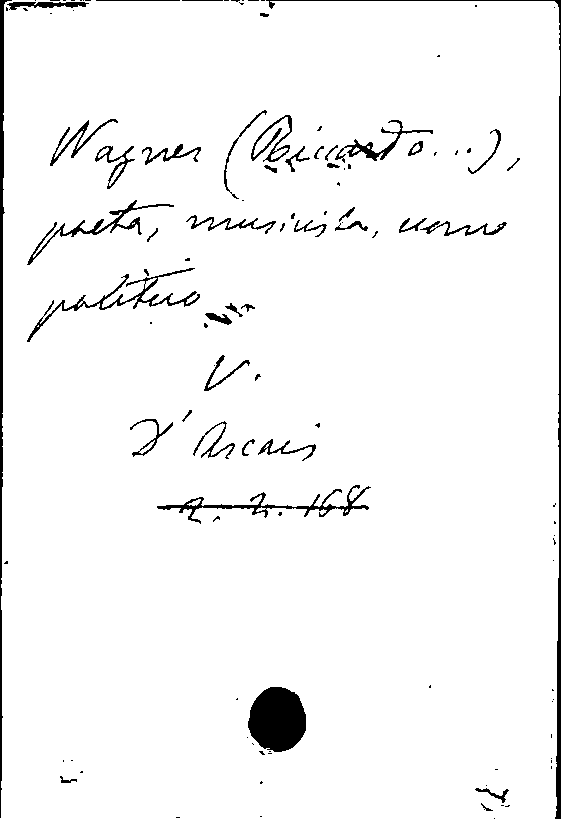 Wagner (Riccardo...),
poeta, musicista, uomo
politico
V.
D'Arcais
2. 2. 168